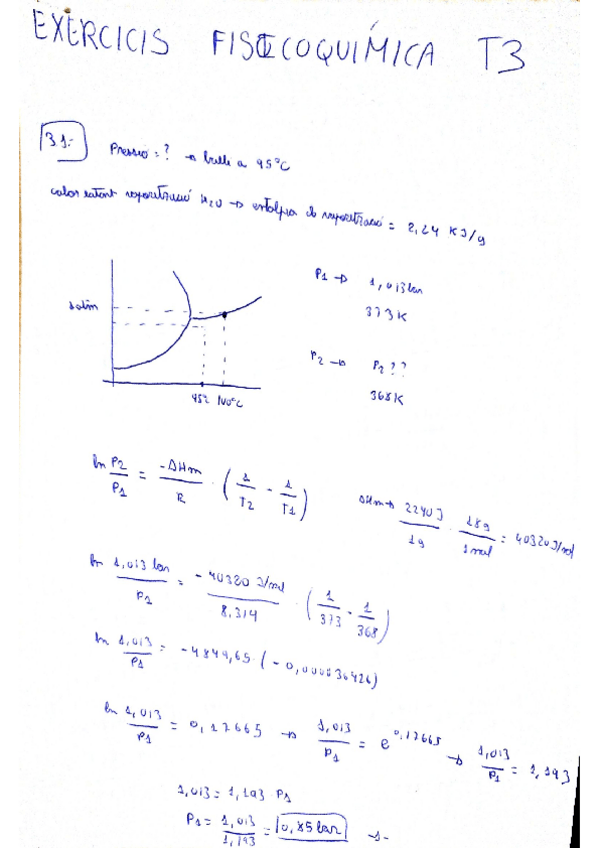 EXERCICIS FISICOQUÍMICA T3
3.1.- Pressió = ? → bulle a 95°C
calor latent vaporització H2O → entalpia de vaporització = 2,24 KJ/g
P1 → 1,013 bar
373 K
P2 → P2 ??
368 K
1 atm
95°C 100°C
ln P2/P1 = -ΔHm/R · (1/T2 - 1/T1)
ΔHm → 2240 J/1g · 18g/1 mol = 40320 J/mol
ln 1,013 bar/P1 = - 40320 J/mol/8,314 · (1/373 - 1/368)
ln 1,013/P1 = -4849,65 · (-0,000036426)
ln 1,013/P1 = 0,17665 → 1,013/P1 = e^0,17665 → 1,013/P1 = 1,193
1,013 = 1,193 · P1
P1 = 1,013/1,193 = 0,85 bar
-1-